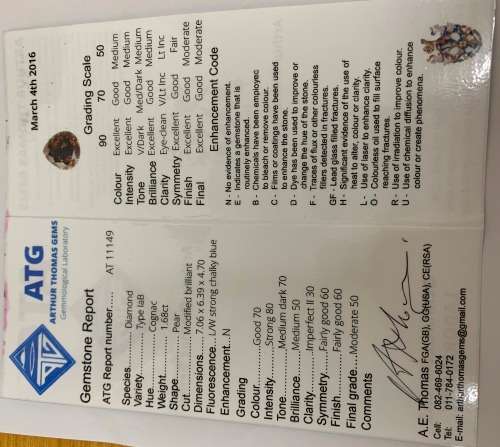 ATG
ARTHUR THOMAS GEMS
Gemmological Laboratory
Gemstone Report
ATG Report number..... AT 11149
Species.......Diamond
Variety.......Type IaB
Hue...........Cognac
Weight........1.68ct
Shape.........Pear
Cut...........Modified brilliant
Dimensions...7.06 x 6.39 x 4.70
Fluorescence. L/W strong chalky blue
Enhancement. N
Grading
Colour.......Good 70
Intensity.....Strong 80
Tone..........Medium dark 70
Brilliance....Medium 50
Clarity.......Imperfect II 30
Symmetry....Fairly good 60
Finish........Fairly good 60
Final grade..Moderate 50
Comments
A.E. Thomas FGA(GB), CG(NUBA), CE(RSA)
Cell: 082-469-6024
Tel: 011-784-0172
E-mail: arthurthomasgems@gmail.com
March 4th 2016
Grading Scale
90 70 50
Colour Excellent Good Medium
Intensity Excellent Good Medium
Tone Dark Med/Dark Medium
Brilliance Excellent Good Medium
Clarity Eye-clean V/Lt Inc Lt Inc
Symmetry Excellent Good Fair
Finish Excellent Good Moderate
Final Excellent Good Moderate
Enhancement Code
N - No evidence of enhancement.
E - Indicates a gemstone that is
routinely enhanced.
B - Chemicals have been employed
to bleach or remove colour.
C - Films or coatings have been used
to enhance the stone.
D - Dye has been used to improve or
change the hue of the stone.
F - Traces of flux or other colourless
fillers effected fractures.
GF - Lead glass filled fractures.
H - Significant evidence of the use of
heat to alter, colour or clarity.
L - Use of laser to enhance clarity.
O - Colourless oil used to fill surface
reaching fractures.
R - Use of irradiation to improve colour.
U - Use of chemical diffusion to enhance
colour or create phenomena.